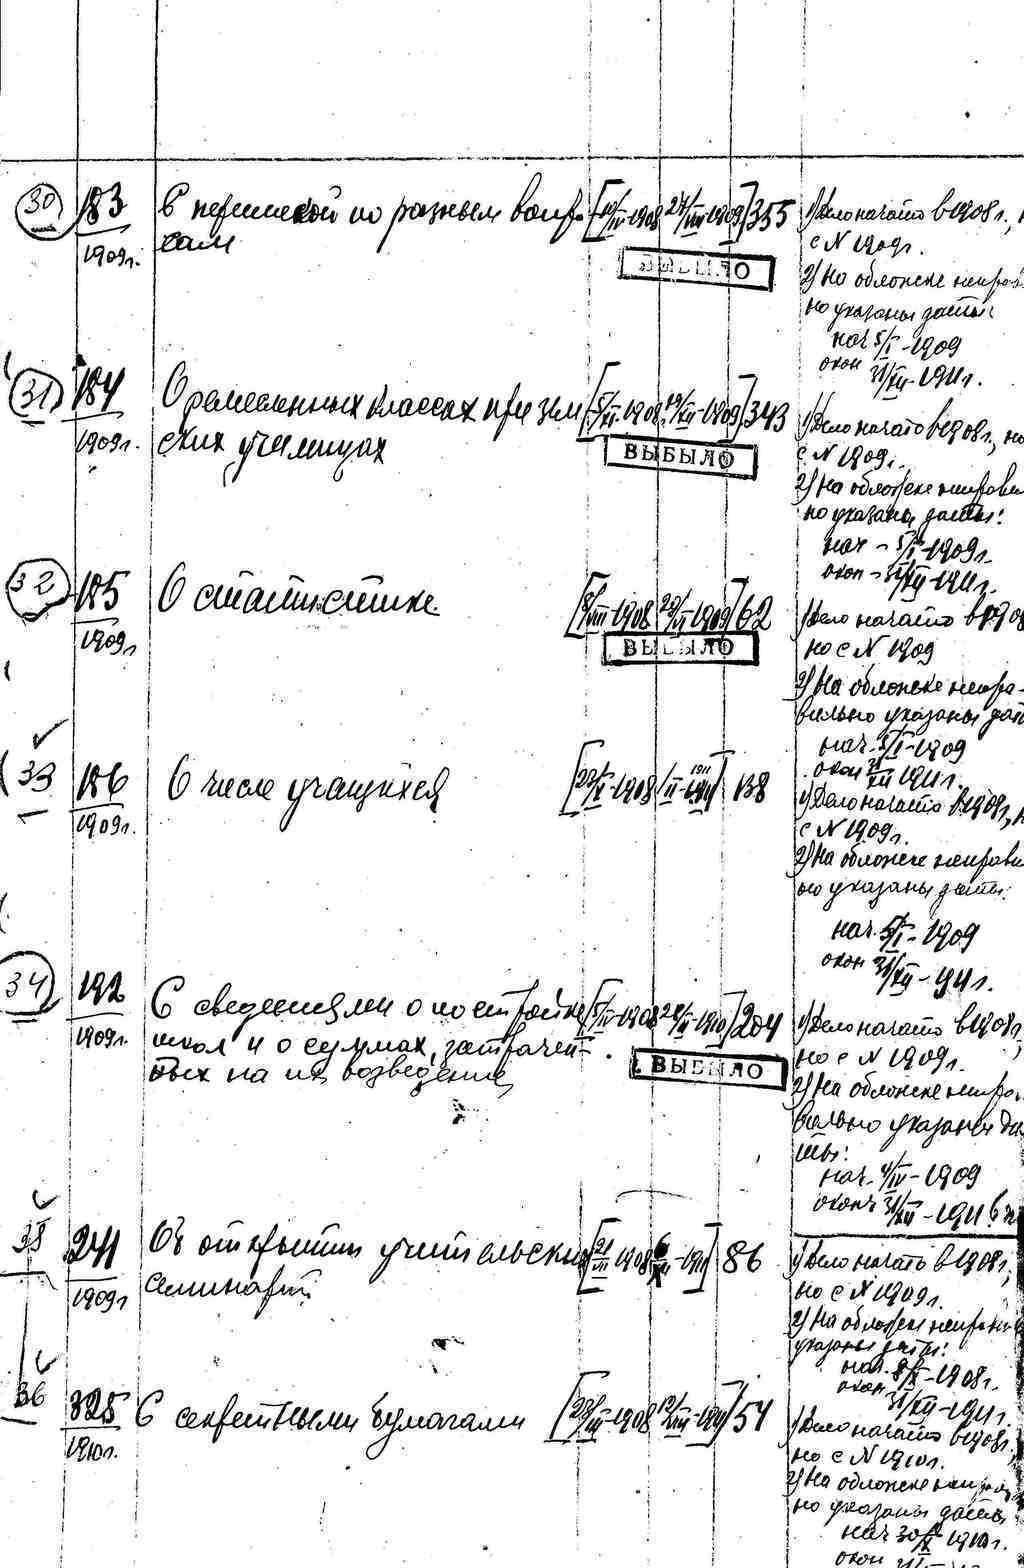 30 183 С перепиской по разным вопро- [10/IV-1908 27/VIII-1909] 355 1) Дело начато в 1908 г.,
1909 г. сам с N 1909 г.
ВЫБЫЛО
2) На обложке неправ
но указаны даты:
нач 5/I-1909
окон 31/XII-1911 г.
31 184 О ремесленных классах при зем [5/XI-1908 19/XII-1909] 343 1) Дело начато в 1908 г., но
1909 г. ских училищах с N 1909 г.
ВЫБЫЛО
2) На обложке неправи
но указаны даты:
нач - 5/I-1909 г.
окон - 31/XII-1911 г.
32 185 О статистике. [8/VIII-1908 29/VI-1909] 62 1) Дело начато в 1908
1909 г. но с N 1909
ВЫБЫЛО
2) На обложке непра-
вильно указаны дат
нач. 5/I-1909
окон 31/XII 1911 г.
33 186 О числе учащихся [22/X-1908 /II-1911] 138 1) Дело начато в 1908 г.,
1909 г. с N 1909 г.
2) На обложке неправи
но указаны даты:
нач. 5/I-1909
окон 31/XII-1911 г.
34 192 С сведениями о постройке [5/IV-1908 28/II-1910] 204 1) Дело начато в 1908 г.,
1909 г. школ и о суммах, затрачен- но с N 1909 г.
ных на их возведение
ВЫБЫЛО
2) На обложке непра
вильно указаны да
ты:
нач. 4/IV-1909
оконч 31/XII-1911
35 241 Об открытии учительских [21/VII 1908 6/XII-1911] 86 1) Дело начато в 1908 г.,
1909 г семинарий но с N 1909 г.
2) На обложке неправ
указаны даты:
нач. 8/X-1908 г.
окон. 31/XII-1911 г.
36 325 С секретными бумагами [23/III-1908 12/VIII-1911] 54 1) Дело начато в 1908 г.,
1910 г. но с N 1910 г.
2) На обложке неправ
но указаны даты
нач 30/X 1910 г.
окон